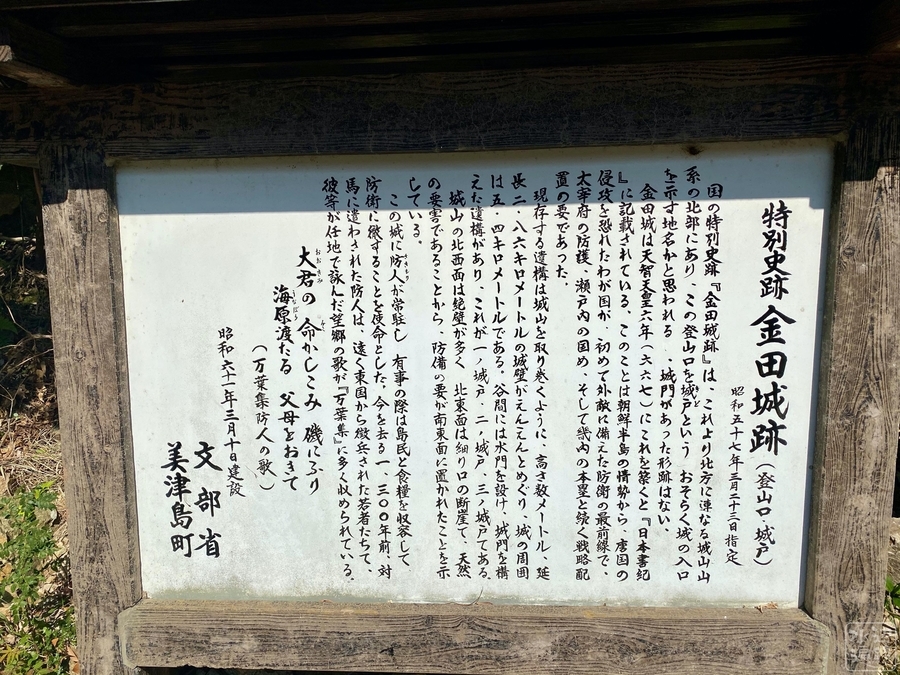 特別史跡 金田城跡（登山口 城戸）
昭和五十七年三月二十三日指定
国の特別史跡『金田城跡』は、これより北方に連なる城山山
系の北部にあり、この登山口を城戸という おそらく城の入口
を示す地名かと思われる 、城門があった形跡はない、
金田城は天智天皇六年（六六七）にこれを築くと『日本書紀
』に記載されている、このことは朝鮮半島の情勢から、唐国の
侵攻を恐れたわが国が、初めて外敵に備えた防衛の最前線で、
太宰府の防護、瀬戸内の固め、そして畿内の本塁と続く戦略配
置の要であった、
現存する遺構は城山を取り巻くように、高さ数メートル、延
長二・八六キロメートルの城壁がえんえんとめぐり、城の周囲
は五・四キロメートルである、谷間には水門を設け、城門を構
えた遺構があり、これが一ノ城戸、二ノ城戸、三ノ城戸である、
城山の北西面は絶壁が多く 北東面は細り口の断崖で、天然
の要害であることから、防備の要が南東面に置かれたことを示
している、
この城に防人が常駐し 有事の際は島民と食糧を収容して
防衛に徹することを使命とした、今を去る一、三〇〇年前、対
馬に遣わされた防人は、遠く東国から徴兵された若者たちで、
彼等が任地で詠んだ望郷の歌が『万葉集』に多く収められている、
大君の 命かしこみ 磯にふり
海原渡たる 父母をおきて
（万葉集防人の歌）
昭和六十一年三月十日建設
文部省
美津島町